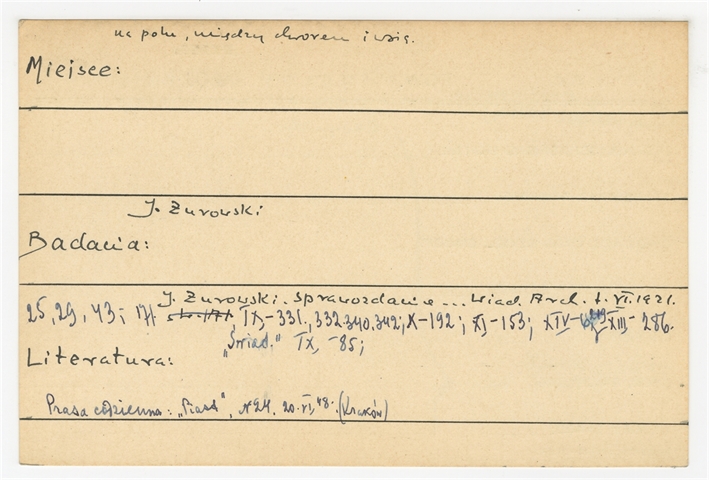 na polu, między dworem i wsią.
Miejsce:
J. Żurowski
Badania:
J. Żurowski. Sprawozdanie... Wiad. Arch. t. VI. 1921.
25, 29, 43; 171 IX,-331, 332.340.342; X-192; XI,-153; XIV- XIII,- 286.
"Świad." IX, -85;
Literatura:
Prasa codzienna: "Piast", N24. 20.VI,48. (Kraków)